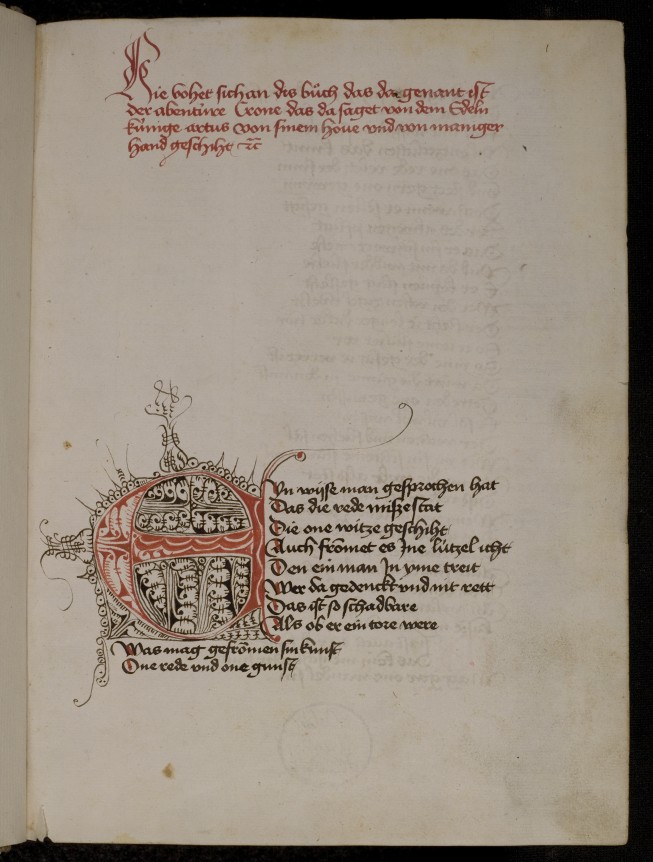 Hie vohet sich an dis bůch das da genant ist
der abentúre Crone das da saget von dem Edeln
kúnige artus von sinem houe vnd von maniger
hand geschiht ꝛc̃
EIn wyse man gesprochen hat
Das die rede miße stat
Die one witze geschiht
Auch frömet es Jne lützel icht
Den ein man Jn yme treit
Wer da gedenckt vnd nit rett
Das ist so schadbare
Als ob er ein tore were
Was mag gefrömen sin kunst
One rede vnd one gunst